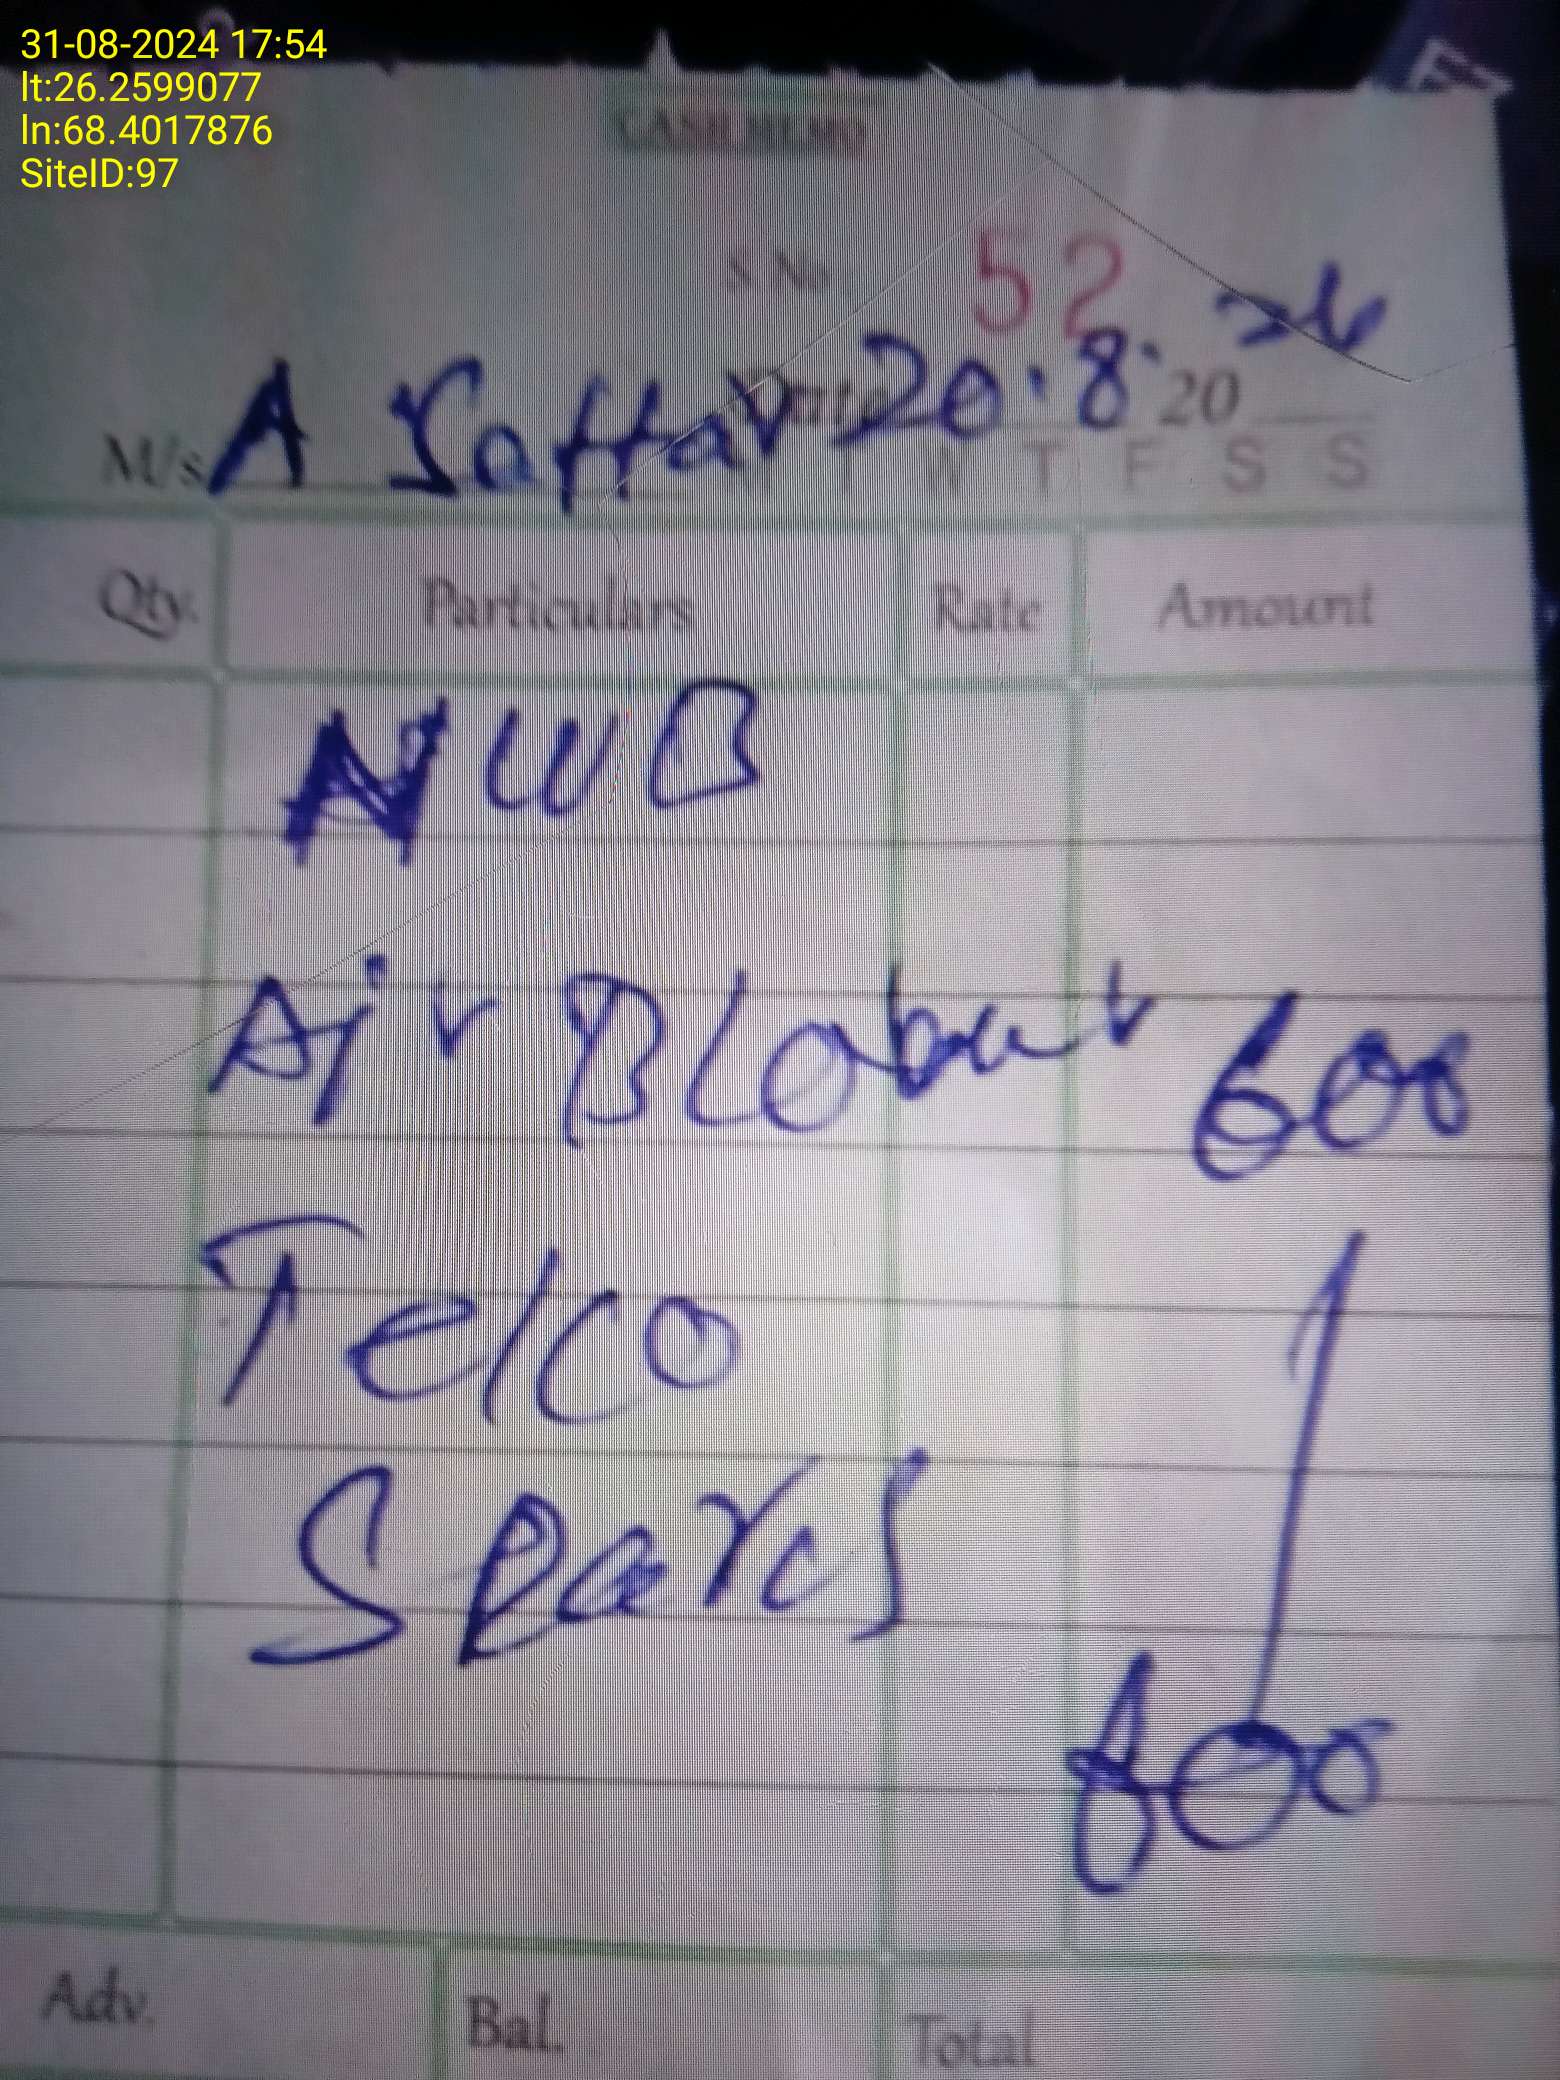 31-08-2024 17:54
lt:26.2599077
ln:68.4017876
SiteID:97
CASH MEMO
S.No 52
M/s A Sattar Date 20.8. 20 24
T F S S
Qty. Particulars Rate Amount
NWB
Air Blabar 600
Telco
Spares
600
Adv. Bal. Total